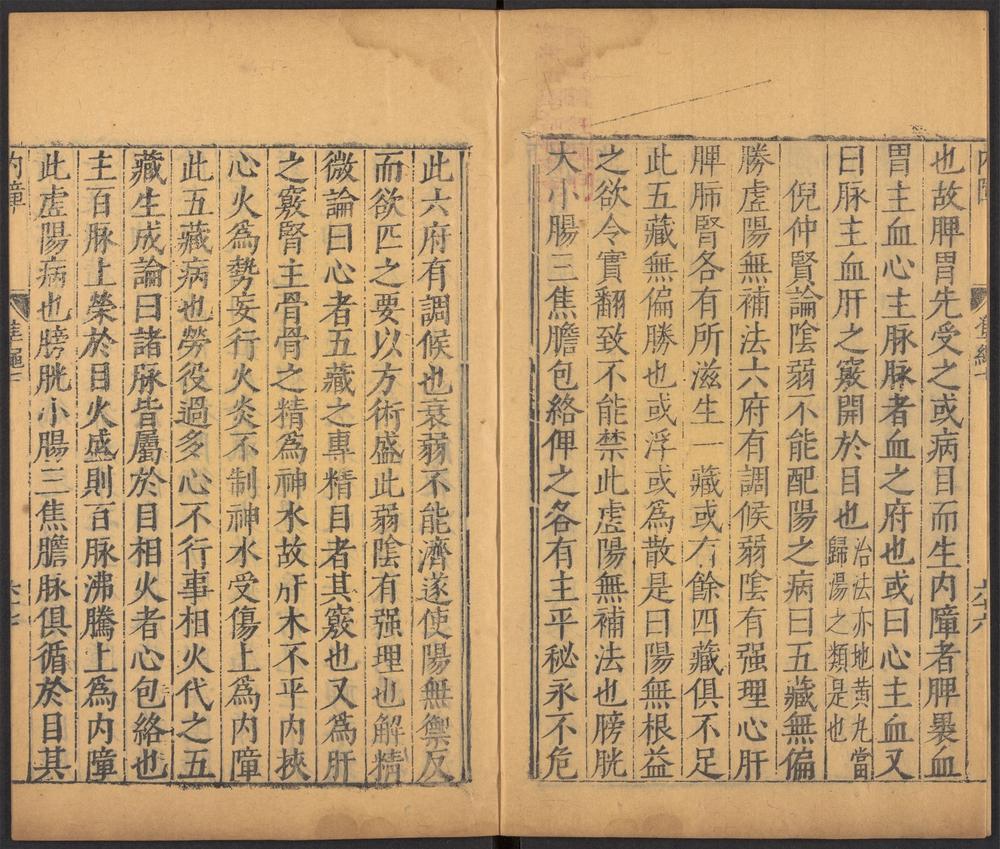 也故脾胃先受之或病目而生内障者脾裹血
胃主血心主脉脉者血之府也或曰心主血又
曰脉主血肝之竅開於目也治法亦地黃丸當歸湯之類是也
倪仲賢論陰弱不能配陽之病曰五藏無偏
勝虛陽無補法六府有調候弱陰有强理心肝
脾肺腎各有所滋生一藏或有餘四藏俱不足
此五藏無偏勝也或浮或爲散是曰陽無根益
之欲令實翻致不能禁此虛陽無補法也膀胱
大小腸三焦膽包絡俾之各有主平秘永不危
此六府有調候也衰弱不能濟遂使陽無禦反
而欲匹之要以方術盛此弱陰有强理也解精
微論曰心者五藏之專精目者其竅也又爲肝
之竅腎主骨骨之精爲神水故肝木不平内挾
心火爲勢妄行火炎不制神水受傷上爲内障
此五藏病也勞役過多心不行事相火代之五
藏生成論曰諸脉皆屬於目相火者心包絡也
主百脉上榮於目火盛則百脉沸騰上爲内障
此虛陽病也膀胱小腸三焦膽脉俱循於目其
内障
準繩七
六十七